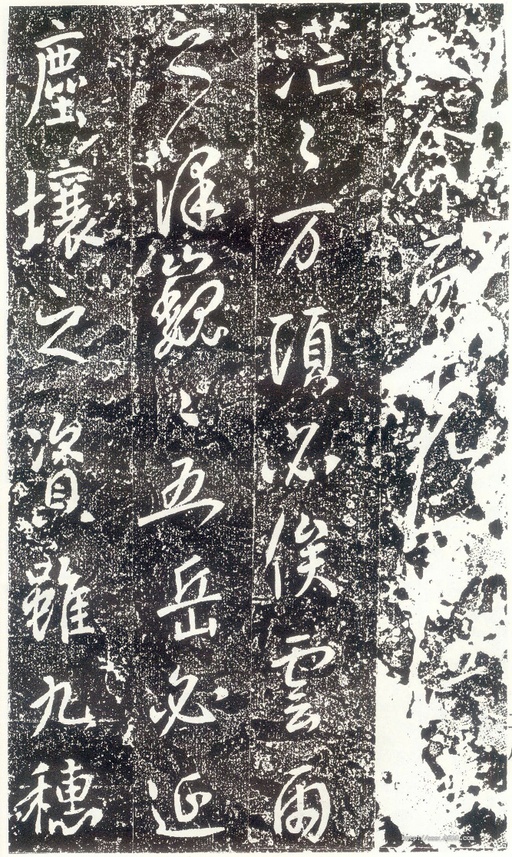 命而
茫〻万頃必俟雲雨
之澤巍〻五岳必延
塵壤之資雖九穗